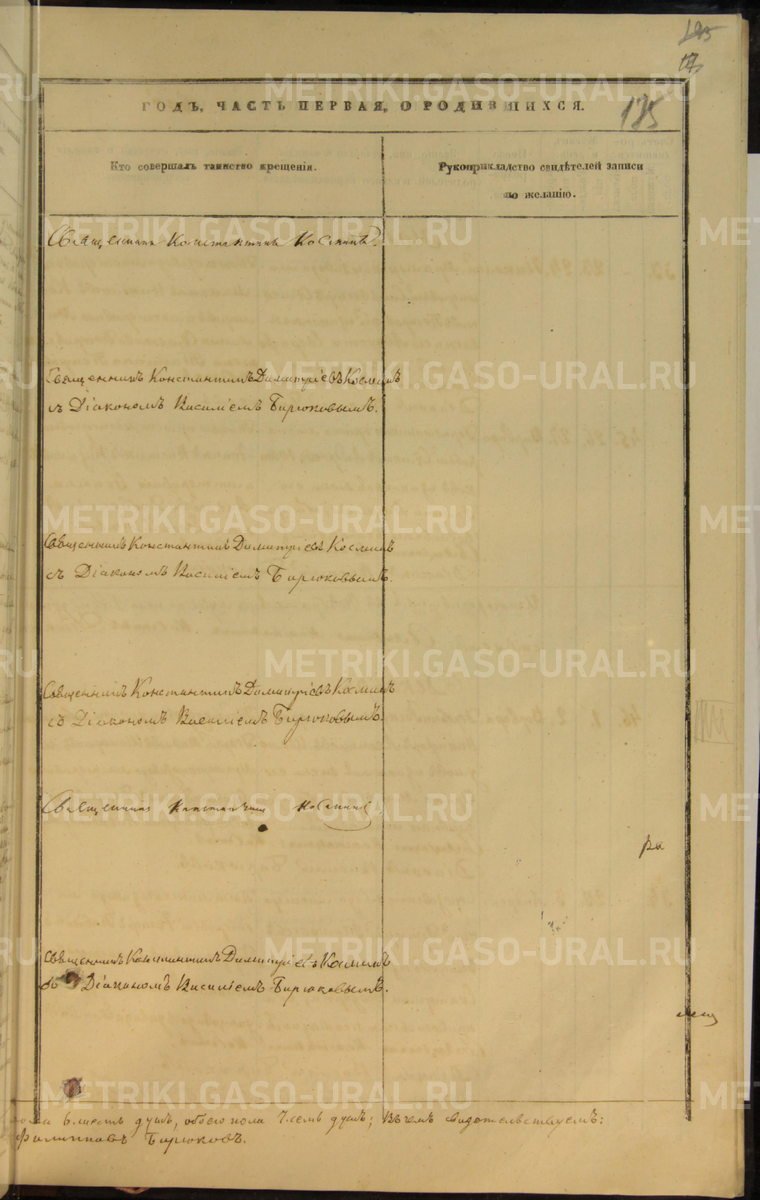 195
135
ГОДЪ, ЧАСТЬ ПЕРВАЯ, О РОДИВШИХСЯ.
Кто совершалъ таинство крещенія.
Рукоприкладство свидѣтелей записи
по желанію.
Священникъ Константинъ Косминъ
Священникъ Константинъ Димитріевъ Косминъ
съ Діакономъ Василіемъ Бирюковымъ.
Священникъ Константинъ Димитріевъ Косминъ
съ Діакономъ Василіемъ Бирюковымъ.
Священникъ Константинъ Димитріевъ Косминъ
съ Діакономъ Василіемъ Бирюковымъ.
Священникъ Константинъ Косминъ
Священникъ Константинъ Димитріевъ Косминъ
Діакономъ Василіемъ Бирюковымъ.
пола 6. шесть душъ, обоего пола 7. семь душъ; въ чемъ свидѣтельствуемъ:
Филипповъ Бирюковъ.
METRIKI.GASO-URAL.RU